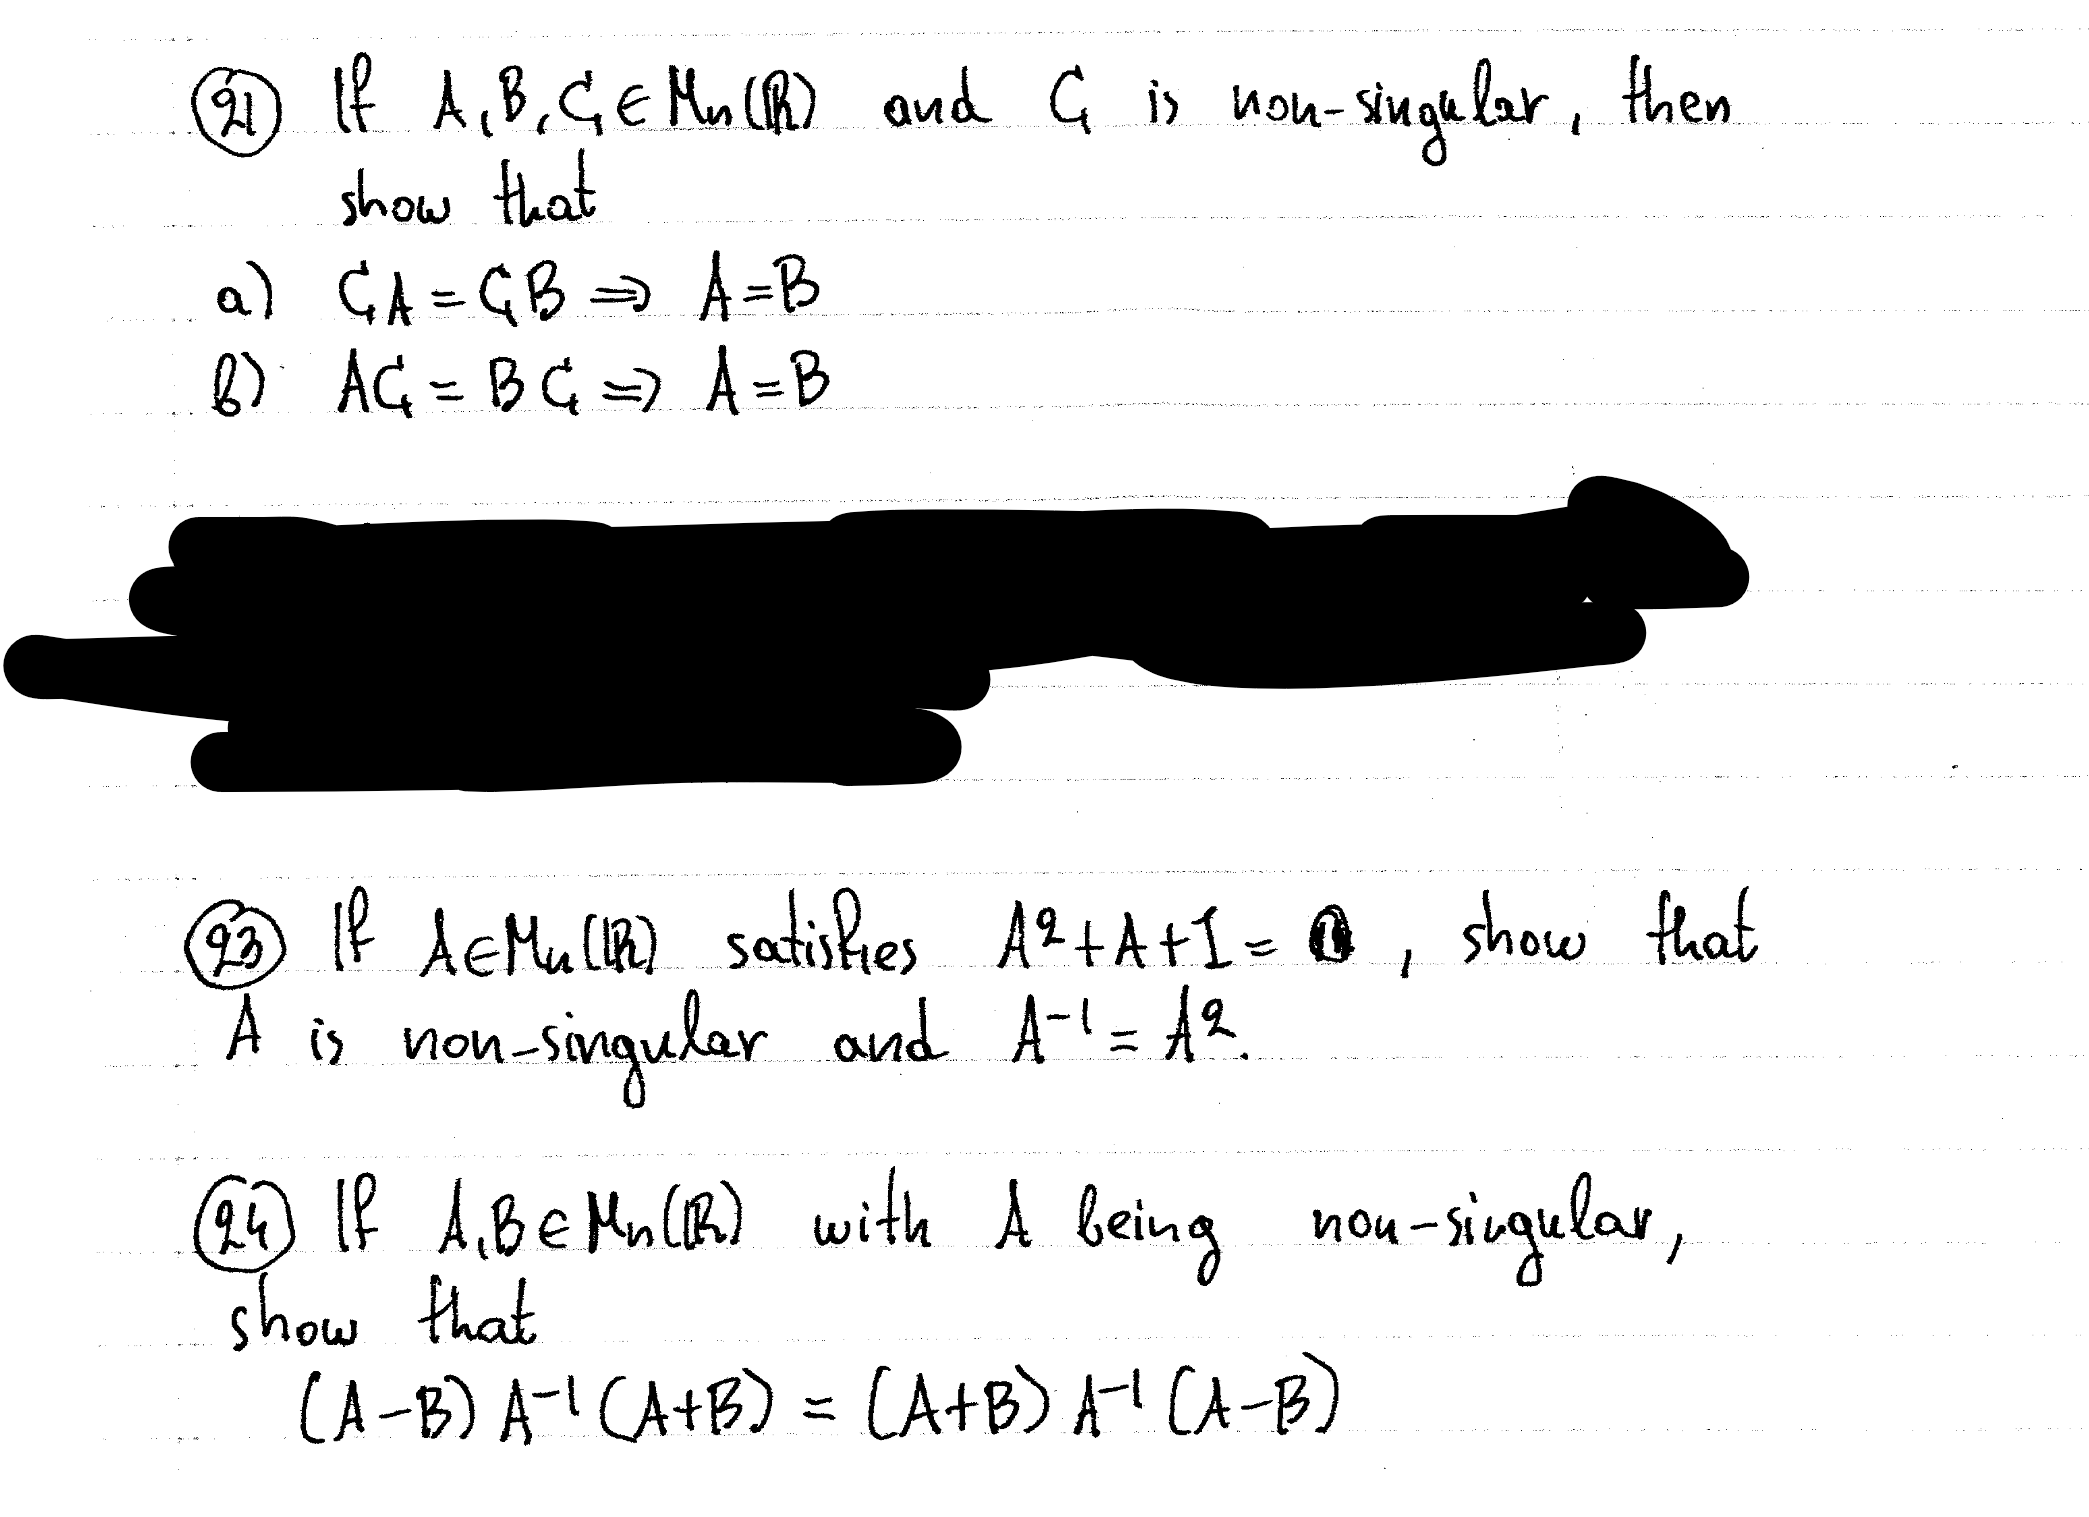 (21) If A, B, C ∈ Mn(ℝ) and C is non-singular, then
show that
a) CA = CB ⇒ A = B
b) AC = BC ⇒ A = B
(23) If A ∈ Mn(ℝ) satisfies A² + A + I = 0, show that
A is non-singular and A⁻¹ = A².
(24) If A, B ∈ Mn(ℝ) with A being non-singular,
show that
(A-B) A⁻¹ (A+B) = (A+B) A⁻¹ (A-B)